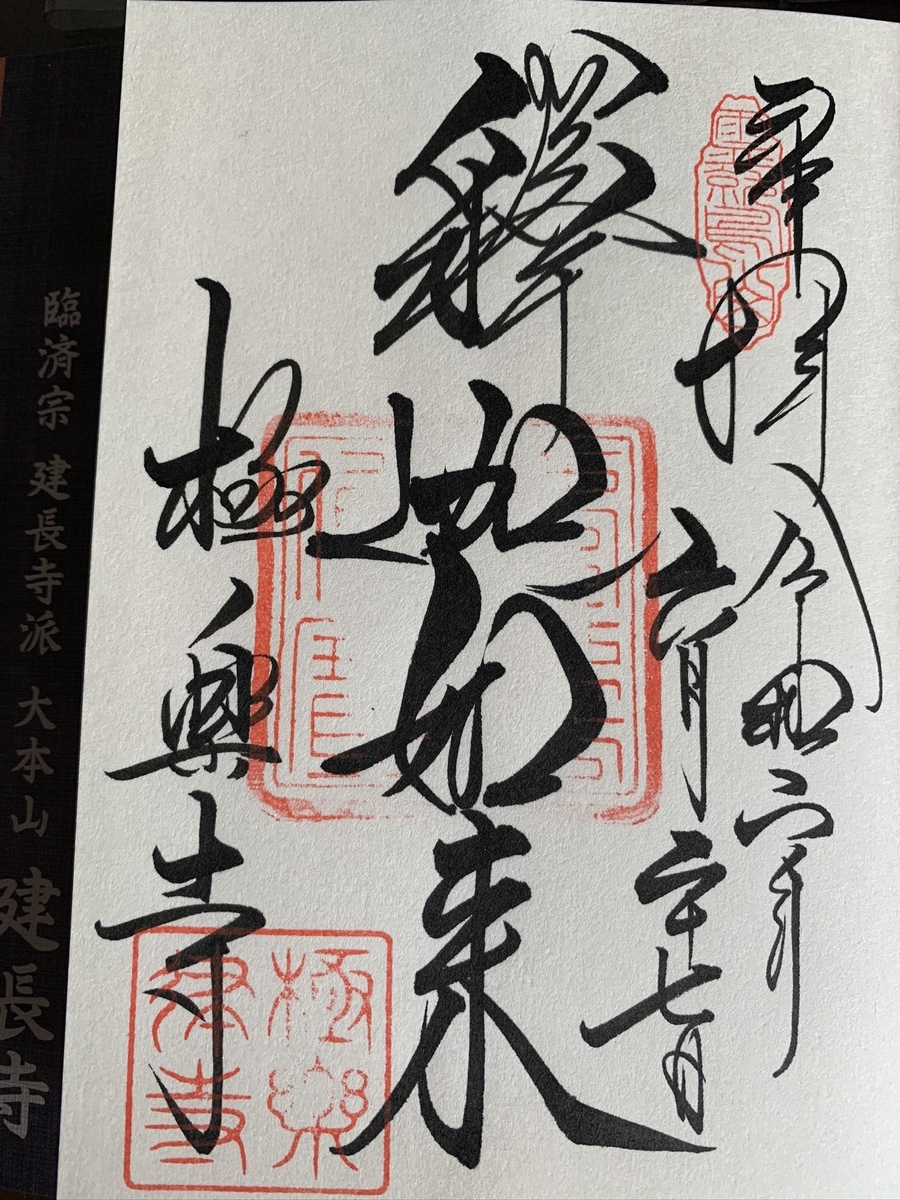 奉拝
令和六年
六月二十七日
釋迦如来
極樂寺
極樂
律寺
臨済宗 建長寺派 大本山 建長寺